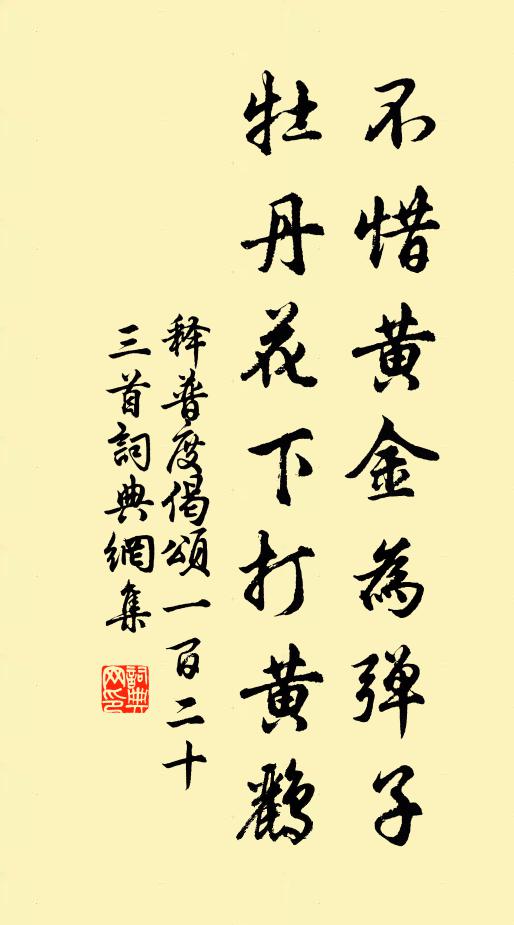 不惜黄金為弹子
牡丹花下打黄鸝
释普度偈頌一百二十
三首詞典網集
詞典网印